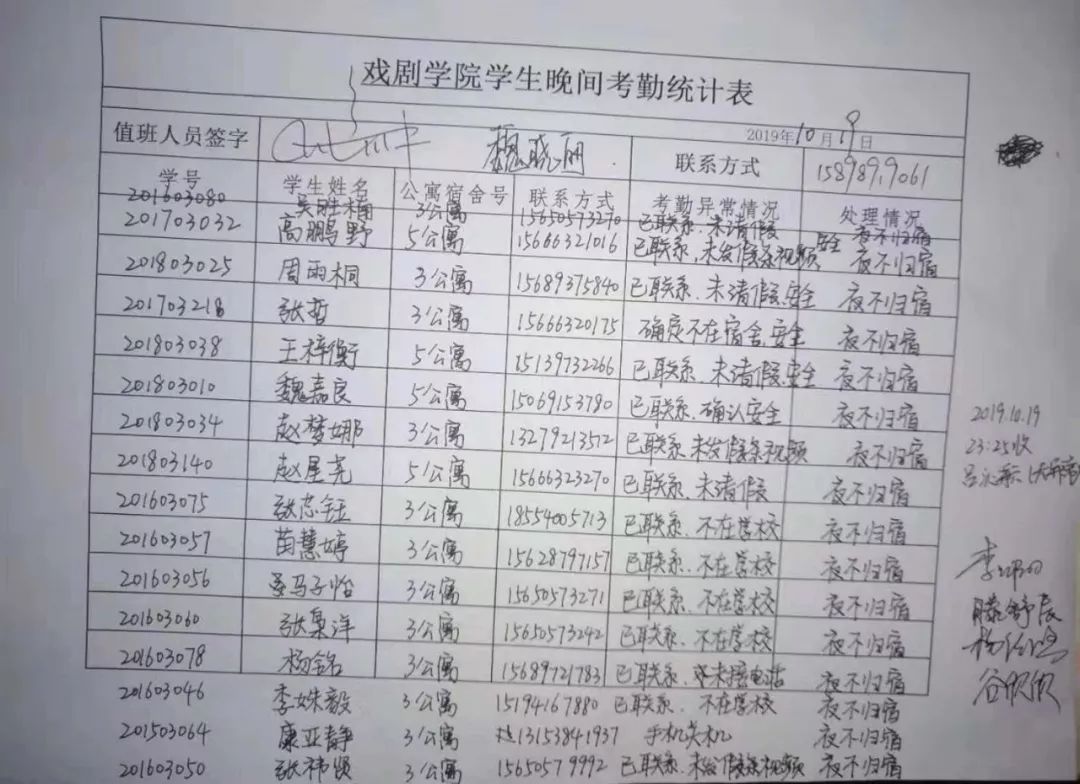 戏剧学院学生晚间考勤统计表
2019年10月19日
值班人员签字 魏晓丽 联系方式 15898919061
学号 学生姓名 公寓宿舍号 联系方式 考勤异常情况 处理情况
201603080 吴胜楠 3公寓 15650573270 已联系、未请假 夜不归宿
201703032 高鹏野 5公寓 15666321016 已联系,未发假条视频 安全 夜不归宿
201803025 周雨桐 3公寓 15689375840 已联系、未请假、安全 夜不归宿
201703218 张哲 3公寓 15666320175 确定不在宿舍,安全 夜不归宿
201803038 王梓衡 5公寓 15139732266 已联系、未请假、安全 夜不归宿
201803010 魏嘉良 5公寓 15069153780 已联系、确认安全 夜不归宿
201803034 赵梦娜 3公寓 13279213512 已联系、未发假条视频 夜不归宿
201803140 赵星尧 5公寓 15666323270 已联系、未请假 夜不归宿
201603075 张志钰 3公寓 18554005713 已联系、不在学校 夜不归宿
201603057 苗慧婷 3公寓 15628797157 已联系、不在学校 夜不归宿
201603056 司马子怡 3公寓 15650573271 已联系、不在学校 夜不归宿
201603060 张枭洋 3公寓 15650573242 已联系、不在学校 夜不归宿
201603078 杨铭 3公寓 15689721783 已联系、未接电话 夜不归宿
201603046 李姝毅 3公寓 15194167880 已联系、不在学校 夜不归宿
201503064 康亚静 3公寓 13153841937 手机关机 夜不归宿
201603050 张祎贤 3公寓 15650579992 已联系、未发假条视频 夜不归宿
2019.10.19
23:25收
滕舒辰
谷欣欣